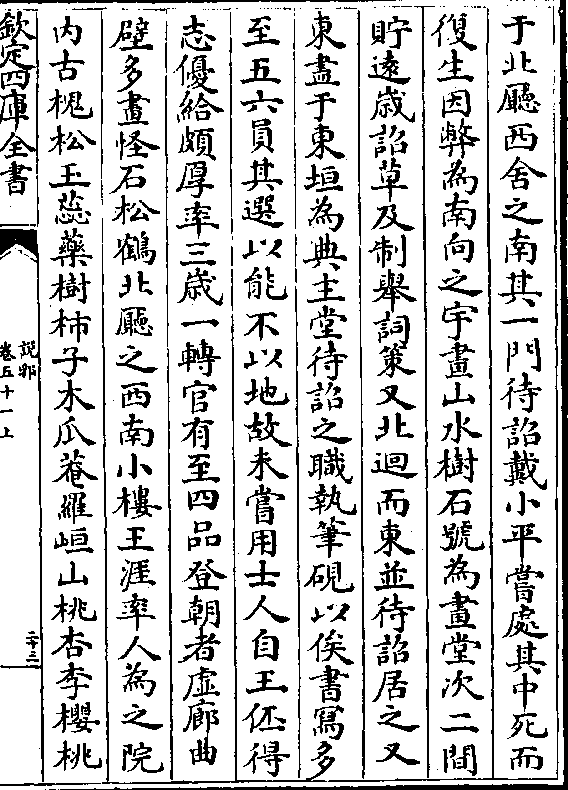 于北廳西舍之南其一門待詔戴小平嘗處其中死而
復生因弊為南向之宇畫山水樹石號為畫堂次二間
貯遠歳詔草及制舉詞策又北迴而東並待詔居之又
東盡于東垣為典主堂待詔之職執筆硯以俟書寫多
至五六員其選以能不以地故未嘗用士人自王伾得
志優給頗厚率三歳一轉官有至四品登朝者虚廊曲
壁多畫怪石松鶴北廳之西南小樓王涯率人為之院
内古槐松玉蕊藥樹柿子木瓜菴羅峘山桃杏李櫻桃
欽定四庫全書
說郛
卷五十一上
二十三